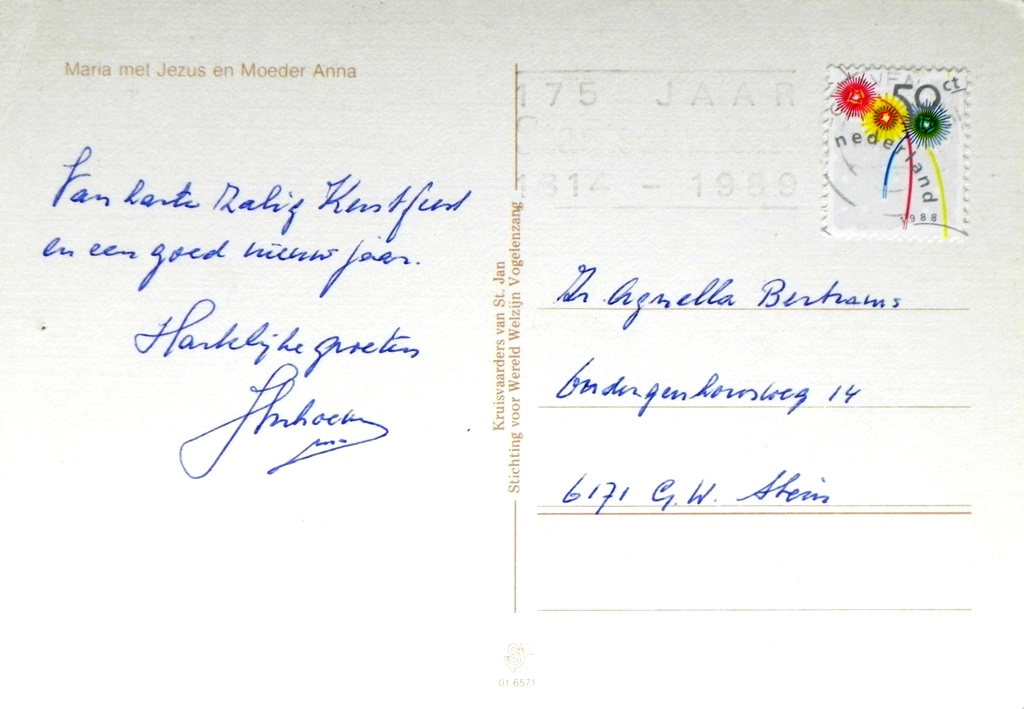 Maria met Jezus en Moeder Anna
Van harte Zalig Kerstfeest
en een goed nieuw jaar.
Hartelijke groeten
Kruisvaarders van St. Jan
Stichting voor Wereld Welzijn Vogelenzang
175 JAAR
1814 - 1989
50 ct
nederland
1988
Zr. Agnella Bertrams
14
6171 G.W. Stein
01 6571